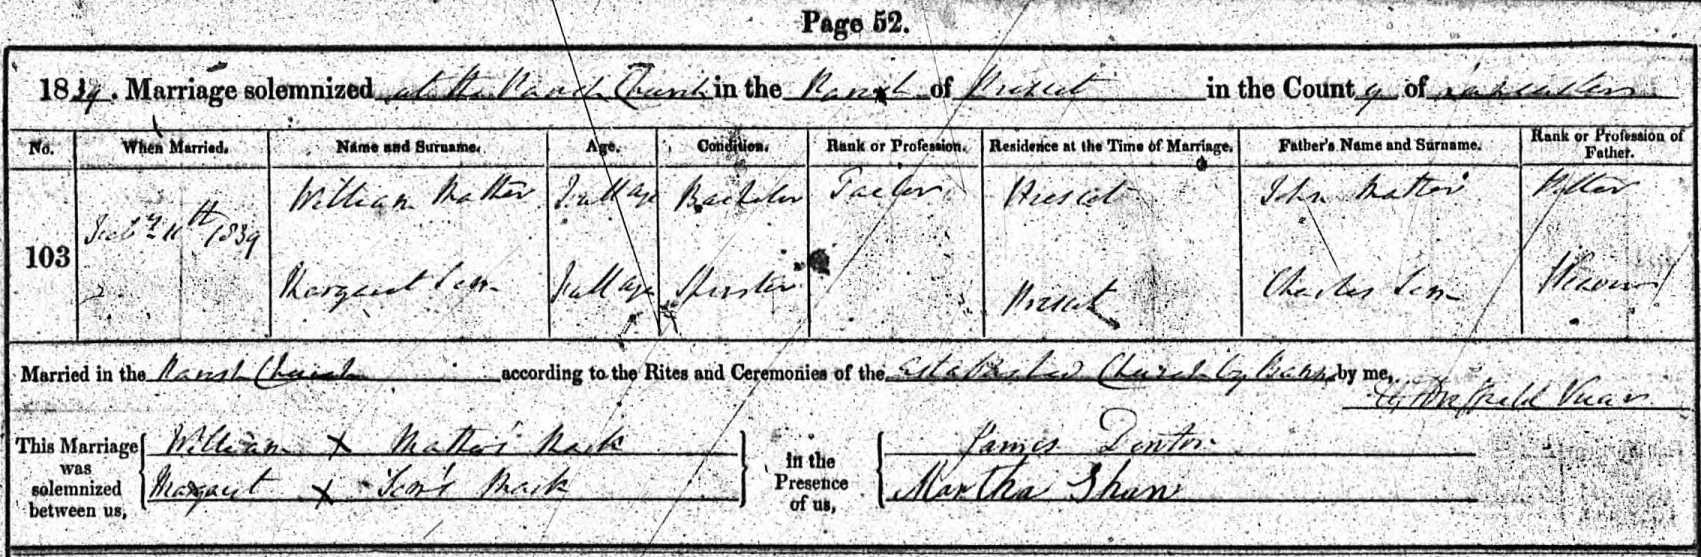 Page 52.
1839. Marriage solemnized at the Parish Church in the Parish of Prescot in the County of Lancaster
No. When Married. Name and Surname. Age. Condition. Rank or Profession. Residence at the Time of Marriage. Father's Name and Surname. Rank or Profession of Father.
William Mather Full Age Bachelor Prescot John Mather
103 Feby 11th 1839
Margaret Full Age Spinster Prescot Charles Weaver
Married in the Parish Church according to the Rites and Ceremonies of the Established Church by Banns by me,
Vicar
This Marriage was solemnized between us,
William X Mather's Mark
Margaret X Mark
in the Presence of us,
James Denton
Martha Shaw